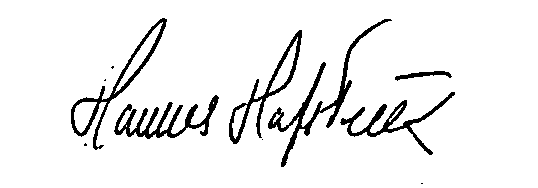 Hannes Hafstein